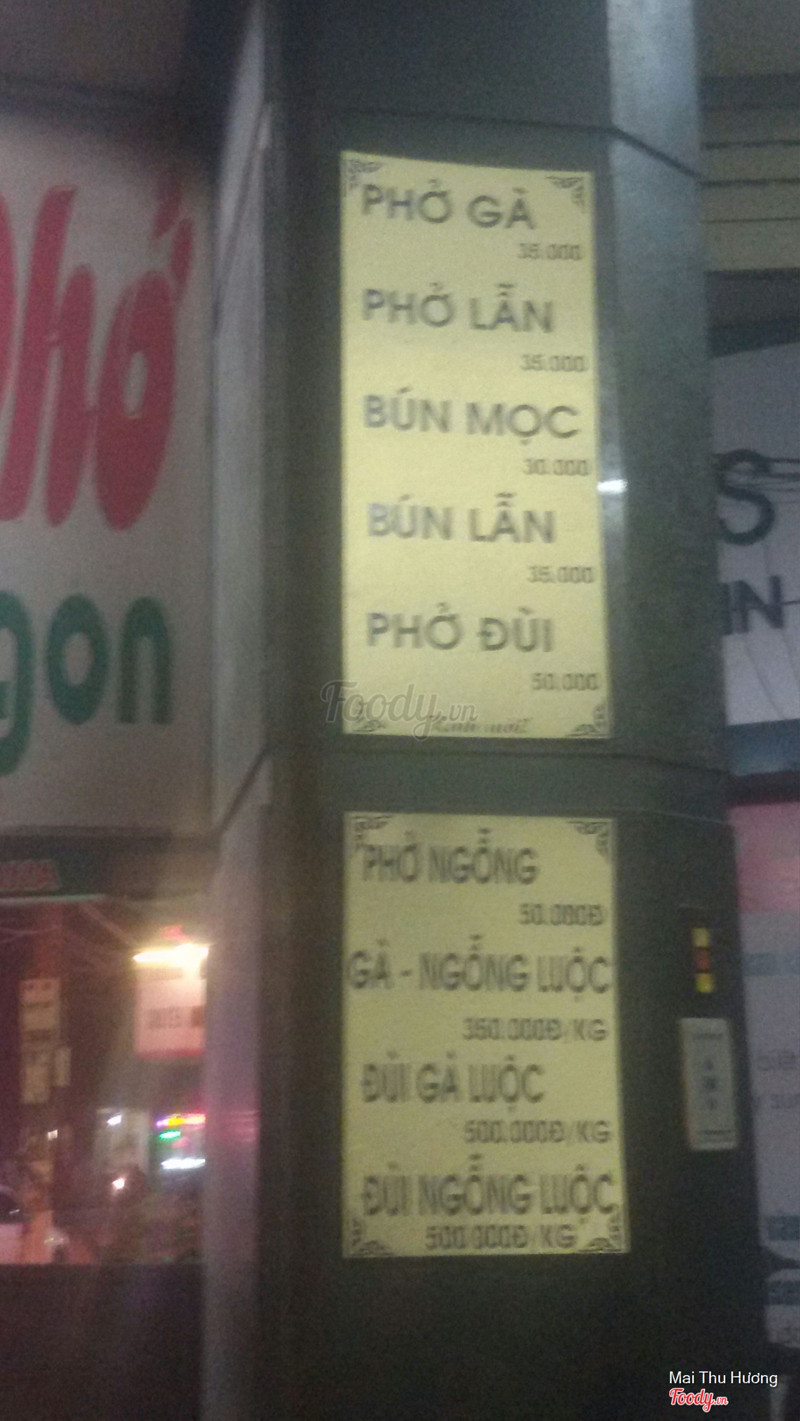 PHỞ GÀ
35.000
PHỞ LẪN
35.000
BÚN MỌC
30.000
BÚN LẪN
35.000
PHỞ ĐÙI
50.000
Kính mời!
PHỞ NGỖNG
50.000Đ
GÀ - NGỖNG LUỘC
350.000Đ/KG
ĐÙI GÀ LUỘC
500.000Đ/KG
ĐÙI NGỖNG LUỘC
500.000Đ/KG
Phố
gon
S
IN
Foody.vn
Mai Thu Hương
Foody.vn